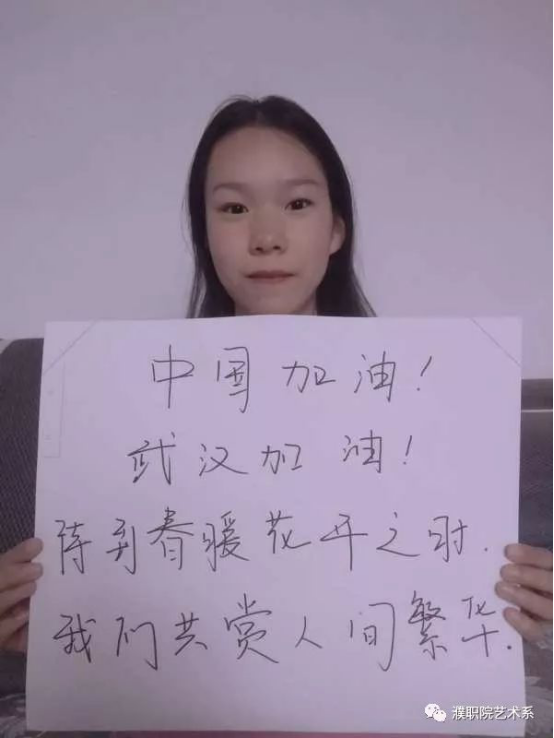 中国加油！
武汉加油！
待到春暖花开之时.
我们共赏人间繁华.
濮职院艺术系